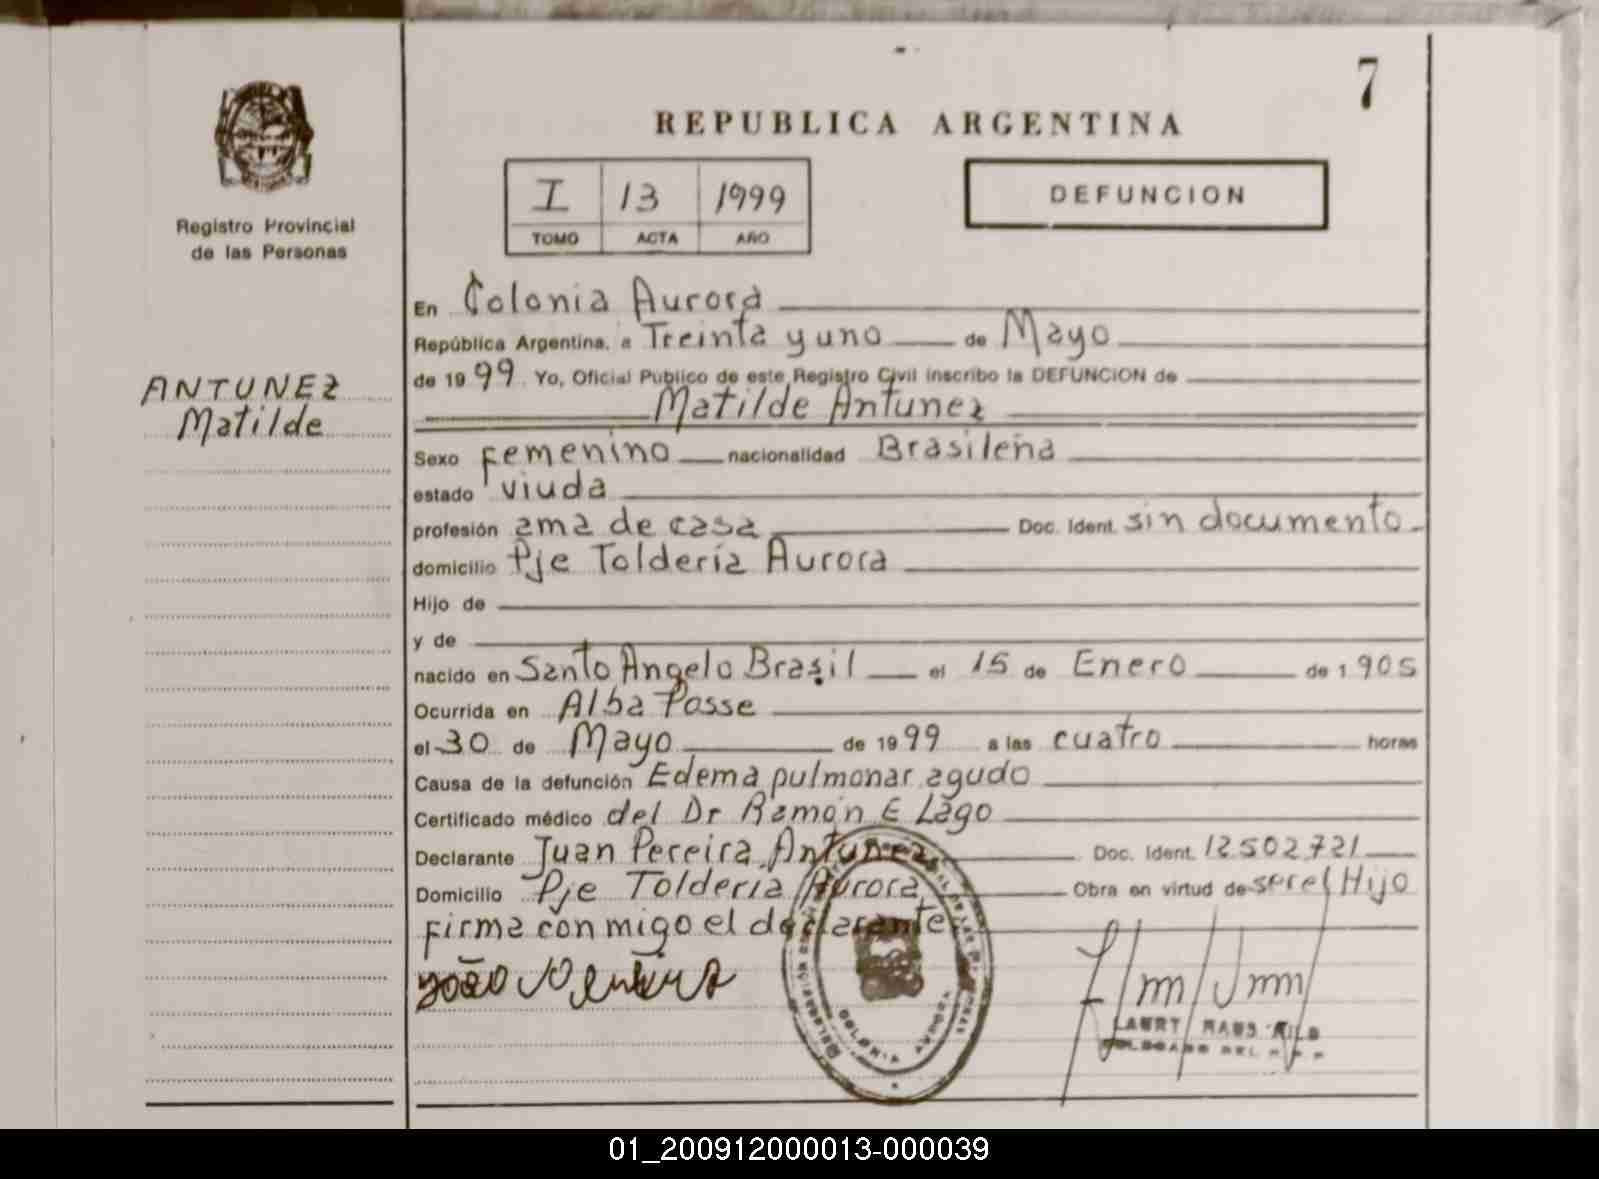 7
REPUBLICA ARGENTINA
I 13 1999
TOMO ACTA AÑO
DEFUNCION
Registro Provincial
de las Personas
ANTUNEZ
Matilde
En Colonia Aurora
República Argentina, a Treinta y uno de Mayo
de 1999 Yo, Oficial Publico de este Registro Civil inscribo la DEFUNCION de
Matilde Antunez
Sexo Femenino nacionalidad Brasileña
estado viuda
profesión ama de casa Doc. Ident. sin documento
domicilio Pje Tolderia Aurora
Hijo de
y de
nacido en Santo Angelo Brasil el 15 de Enero de 1905
Ocurrida en Alba Posse
el 30 de Mayo de 1999 a las cuatro horas
Causa de la defunción Edema pulmonar agudo
Certificado médico del Dr Ramón E Lago
Declarante Juan Pereira Antunez Doc. Ident. 12502721
Domicilio Pje Tolderia Aurora Obra en virtud de ser el Hijo
Firma conmigo el declarante
João
COLONIA AURORA
01_200912000013-000039